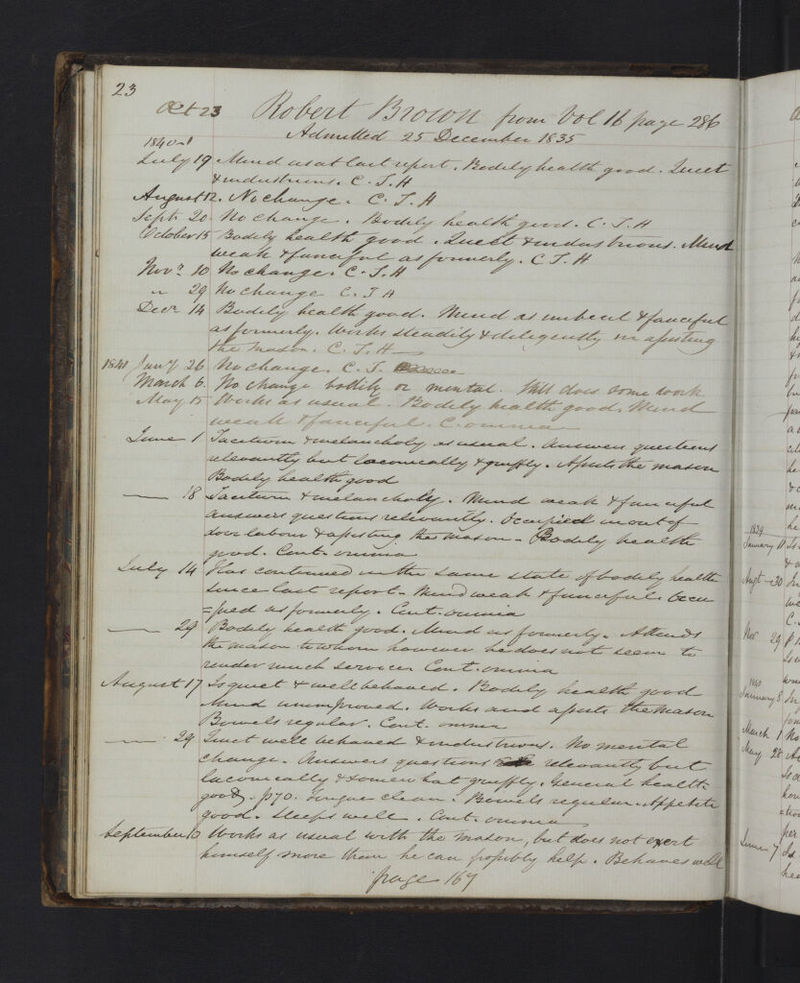 23
Aet 23 Robert Brown from Vol 16 page 286
Admitted 25 December 1835
1840
July 19 Mind as at last report. Bodily health good. Quiet
& industrious. C. J. H
August 12. No change. C. J. H
Septr 20 No change. Bodily health good. C. J. H
October 15 Bodily health good. Quiet & industrious. Mind
weak & fanciful as formerly. C J. H
Novr 10 No change. C. J. H
" 29 No change C. J H
Decr 14 Bodily health good. Mind as imbecile & fanciful
as formerly. Works steadily & diligently in assisting
the mason. C. J. H
1841 Jany 26 No change. C. J.
March 6. No change bodily or mental. Still does some work
May 15 Works as usual. Bodily health good. Mind
weak & fanciful. C. omnia
June 1 Taciturn & melancholy as usual. Answers questions
relevantly but laconically & gruffly. Assists the mason
Bodily health good
— 18 Taciturn & melancholy. Mind weak & fanciful
answers questions relevantly. Occupied in out of
door labour & assisting the mason - Bodily health
good. Cont. omnia
July 14 Has continued in the same state of bodily health
since last report - Mind weak & fanciful. Occu
=pied as formerly. Cont. omnia
— 29 Bodily health good. Mind as formerly. Attends
the mason to whom however he does not seem to
render much service Cont. omnia
August 17 Is quiet & well behaved. Bodily health good
Mind unimproved. Works and assists the mason
Bowels regular. Cont. omnia
— 29 Quiet well behaved & industrious. No mental
change. Answers questions relevantly but
laconically & somewhat gruffly. General health
good. P 70. Tongue clean. Bowels regular. Appetite
good. Sleeps well. Cont. omnia
September 10 Works as usual with the mason, but does not exert
himself more than he can possibly help. Behaves well
page 167
1839
January 11
Augt 30
Nov 29
1840
January 8
March 1
May 28
June 7